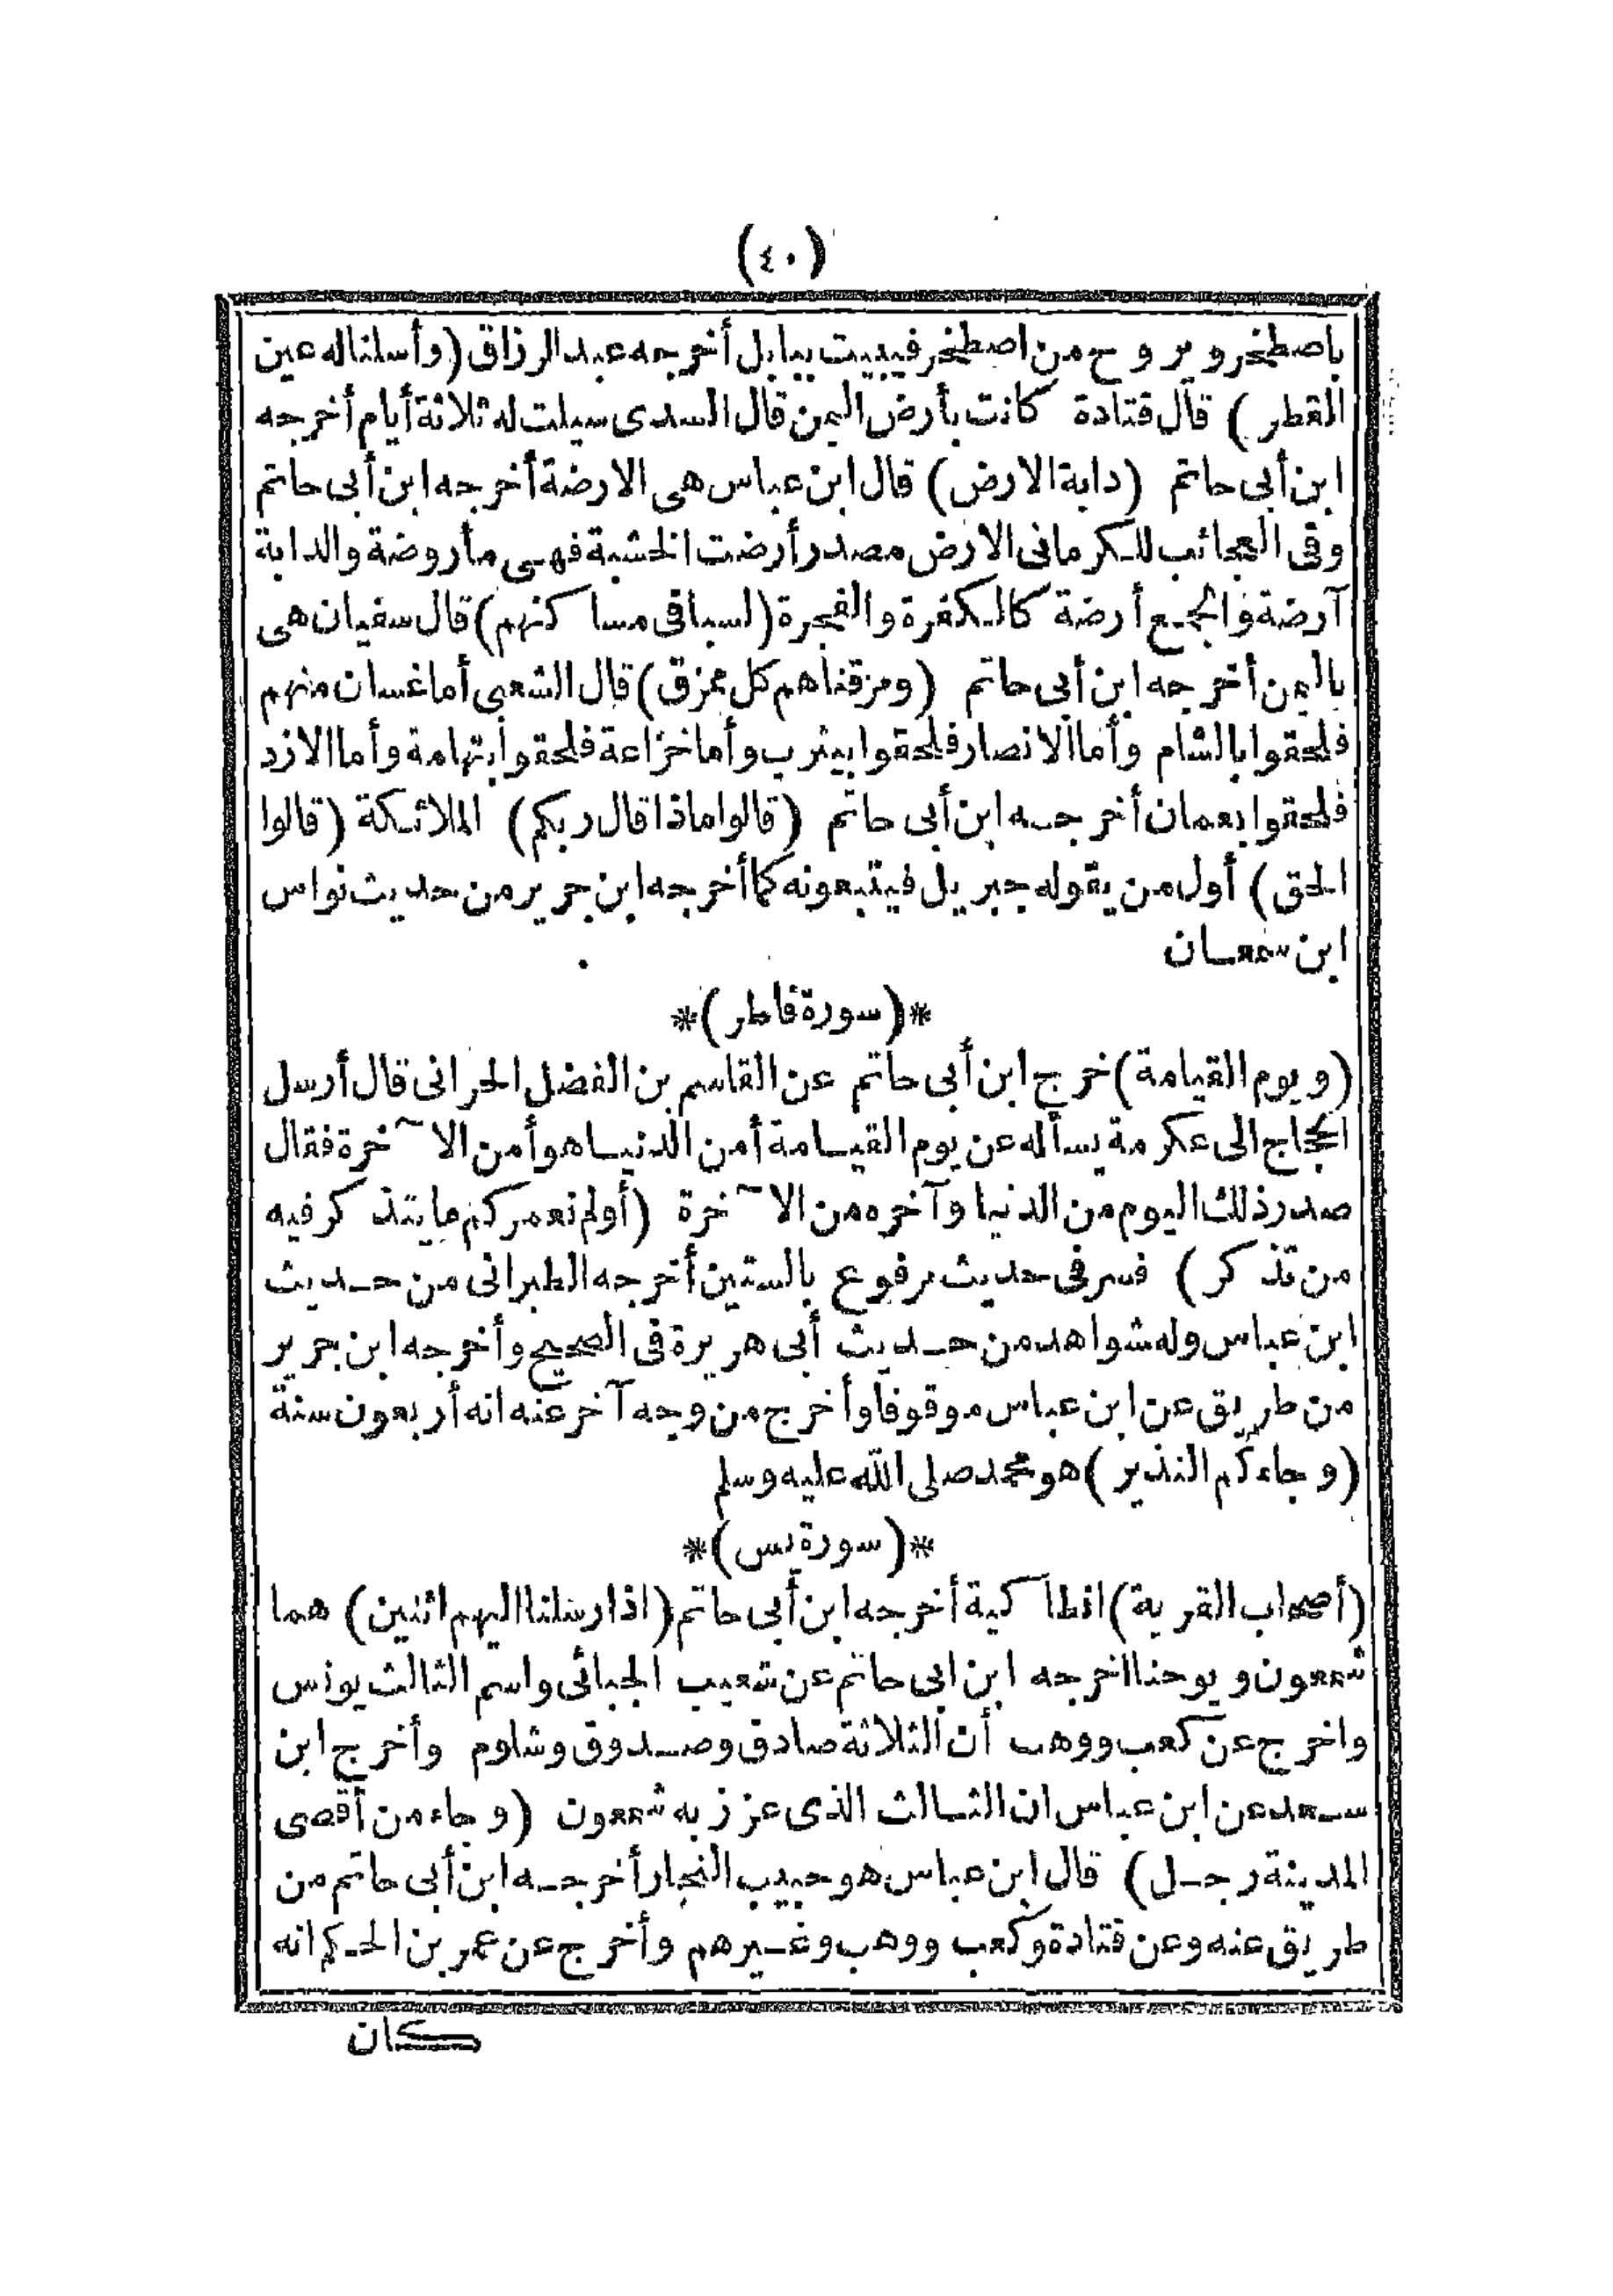 (٤٠)
باصطخر ويروح من اصطخر فيبيت ببابل أخرجه عبد الرزاق (وأسلنا له عين
القطر) قال قتادة كانت بأرض اليمن قال السدى سيلت له ثلاثة أيام أخرجه
ابن أبى حاتم (دابة الارض) قال ابن عباس هى الارضة أخرجه ابن أبى حاتم
وفى العجائب للكرمانى الارض مصدر أرضت الخشبة فهى مأروضة والدابة
آرضة والجمع أرضة كالكفرة والفجرة (لسبا فى مساكنهم) قال سفيان هى
باليمن أخرجه ابن أبى حاتم (ومزقناهم كل ممزق) قال الشعبى أما غسان منهم
فلحقوا بالشام وأما الانصار فلحقوا بيثرب وأما خزاعة فلحقوا بتهامة وأما الازد
فلحقوا بعمان أخرجه ابن أبى حاتم (قالوا ماذا قال ربكم) الملائكة (قالوا
الحق) أول من يقوله جبريل فيتبعونه كما أخرجه ابن جرير من حديث نواس
ابن سمعان
*(سورة فاطر)*
(ويوم القيامة) خرج ابن أبى حاتم عن القاسم بن الفضل الحرانى قال أرسل
الحجاج الى عكرمة يسأله عن يوم القيامة أمن الدنيا هو أمن الآخرة فقال
صدر ذلك اليوم من الدنيا وآخره من الآخرة (أولم نعمركم ما يتذكر فيه
من تذكر) فسر فى حديث مرفوع بالستين أخرجه الطبرانى من حديث
ابن عباس وله شواهد من حديث أبى هريرة فى الصحيح وأخرجه ابن جرير
من طريق عن ابن عباس موقوفا وأخرج من وجه آخر عنه انه أربعون سنة
(وجاءكم النذير) هو محمد صلى الله عليه وسلم
*(سورة يس)*
(أصحاب القرية) انطاكية أخرجه ابن أبى حاتم (اذ ارسلنا اليهم اثنين) هما
شمعون ويوحنا اخرجه ابن ابى حاتم عن شعيب الجبائى واسم الثالث يونس
واخرج عن كعب ووهب أن الثلاثة صادق وصدوق وشلوم وأخرج ابن
سعد عن ابن عباس ان الثالث الذى عزز به شمعون (وجاء من أقصى
المدينة رجل) قال ابن عباس هو حبيب النجار أخرجه ابن أبى حاتم من
طريق عنه وعن قتادة وكعب ووهب وغيرهم وأخرج عن عمر بن الحكم انه
كان